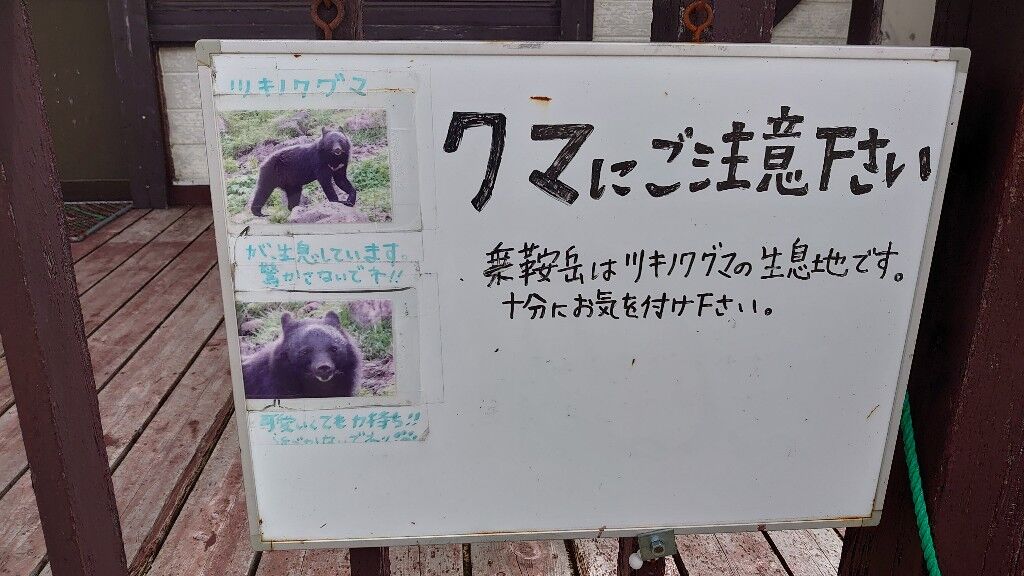 ツキノワグマ
が、生息しています。
驚かさないでネ!!
可愛いくても力持ち!!
クマにご注意下さい
乗鞍岳はツキノワグマの生息地です。
十分にお気を付け下さい。